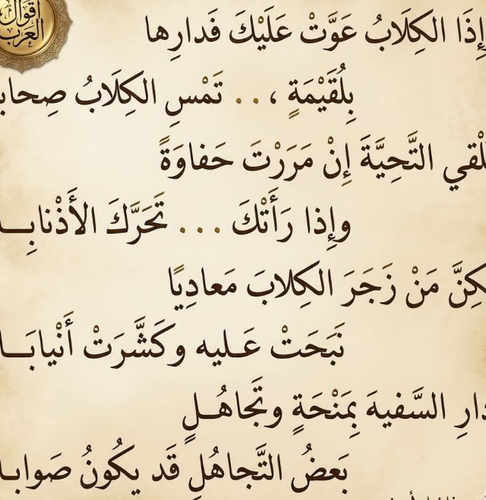 أقوال العرب
وإِذَا الكِلَابُ عَوَّتْ عَلَيْكَ فَدارِها
بِلُقَيْمَةٍ ، . . تَمْسِ الكِلَابُ صِحابا
تُلْقي التَّحِيَّةَ إِنْ مَرَرْتَ حَفاوَةً
وإِذا رَأَتْكَ . . . تَحَرَّكَ الأَذْنابــا
لكِنَّ مَنْ زَجَرَ الكِلابَ مَعادِيًا
نَبَحَتْ عَـليه وكَشَّرَتْ أَنْيابَــا
دارِ السَّفيهَ بِمَنْحَةٍ وتَجاهُــلٍ
بَعضُ التَّجاهُلِ قَد يكُونُ صَوابـا